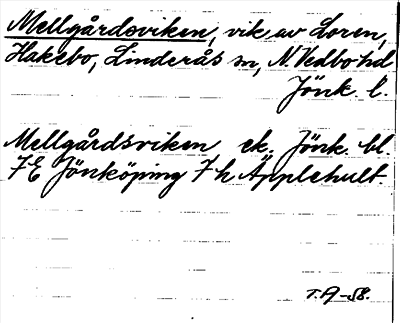 Mellgårdsviken, vik av Loren,
Hakebo, Linderås sn, N. Vedbo hd
Jönk. l.
Mellgårdsviken ek. Jönk. bl.
7E Jönköping 7h Äpplehult.
T.A-58.